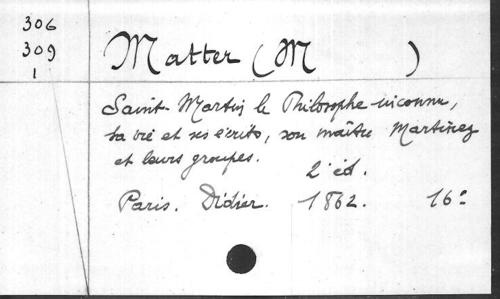 306
309
1
Matter (M )
Saint-Martin le Philosophe inconnu,
sa vie et ses écrits, son maître Martinez
et leurs groupes.
2e éd.
Paris. Didier. 1862. 16°